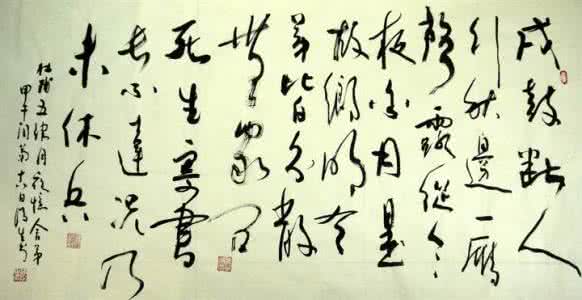 戍鼓断人
行秋邊一雁
聲露從今
夜白月是
故鄉明有
弟皆分散
無家問
死生寄書
長不達況乃
未休兵
杜甫五律月夜憶舍弟
甲午閏菊吉日